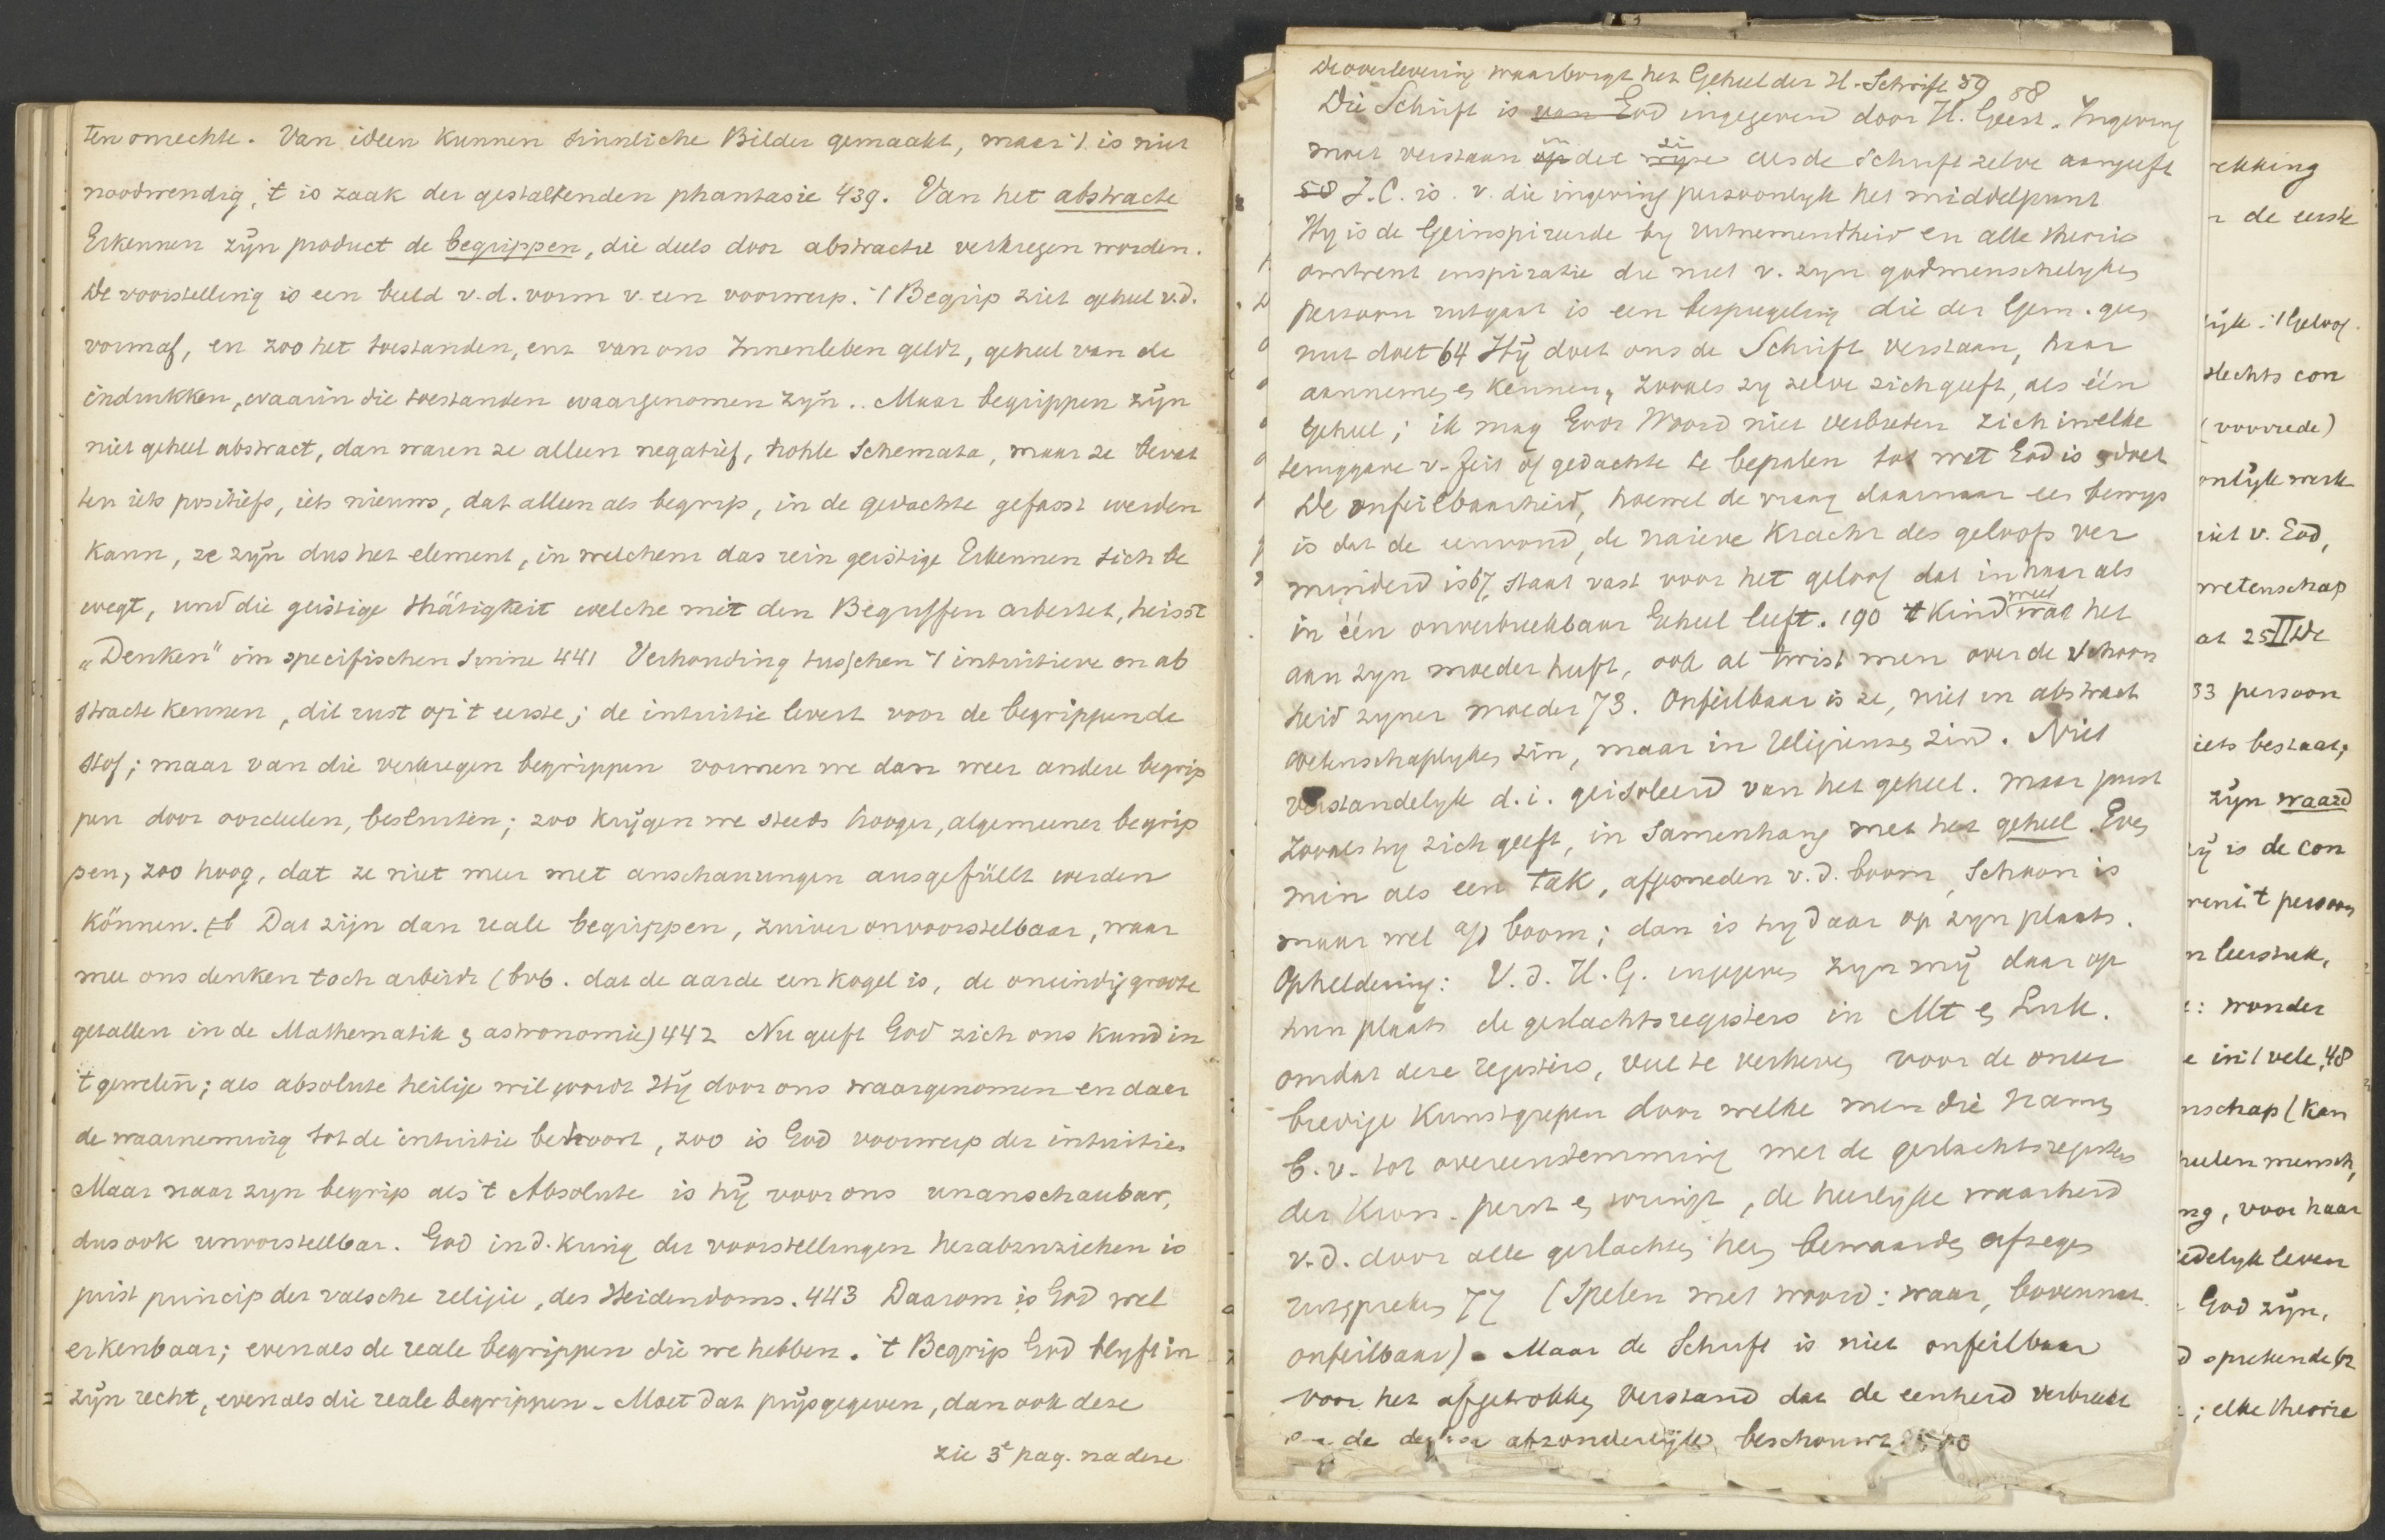 ten onrechte. Van ideen kunnen sinnliche Bilder gemaakt, maar 't is niet
noodwendig, 't is zaak der gestaltenden phantasie 439. Van het abstracte
Erkennen zijn product de begrippen, die deels door abstractie verkregen worden.
De voorstelling is een beeld v.d. vorm v. een voorwerp. 't Begrip ziet geheel v.d.
vorm af, en zoo het toestanden, enz van ons Innenleben geldt, geheel van de
indrukken, waarin die toestanden waargenomen zijn.. Maar begrippen zijn
niet geheel abstract, dan waren ze alleen negatief, hohle Schemata, maar ze bevat
ten iets positiefs, iets nieuws, dat alleen als begrip, in de gedachte gefasst werden
kann, ze zijn dus het element, in welchem das rein geistige Erkennen sich be
wegt, und die geistige thätigkeit welche mit den Begriffen arbeitet, heisst
„Denken" im specifischen Sinne 441 Verhouding tusschen 't intuitieve en ab
stracte kennen, dit rust op 't eerste; de intuitie levert voor de begrippen de
stof; maar van die verkregen begrippen vormen we dan weer andere begrip
pen door oordeelen, besluiten; zoo krijgen we steeds hooger, algemeener begrip
pen, zoo hoog, dat ze niet meer met anschauungen ausgefüllt werden
können. Dat zijn dan reale begrippen, zuiver onvoorstelbaar, waar
mee ons denken toch arbeidt (bvb. dat de aarde een kogel is, de oneindig groote
getallen in de Mathematik & astronomie) 442 Nu geeft God zich ons kund in
't geweten; als absolute heilige wil wordt Hij door ons waargenomen en daar
de waarneming tot de intuitie behoort, zoo is God voorwerp der intuitie.
Maar naar zyn begrip als 't Absolute is hij voor ons unanschaubar,
dus ook unvorstellbar. God in d. kring der voorstellingen herabzuziehen is
juist princip der valsche religie, des Heidendoms. 443 Daarom is God wel
erkenbaar; evenals de reale begrippen die we hebben. 't Begrip God blyft in
zijn recht, evenals die reale begrippen. Moet dat prijsgegeven, dan ook deze
zie 3e pag. na deze
De overlevering waarborgt het Geheel der H. Schrift 59 58
Die Schrift is van God ingegeven door H. Geest. Ingeving
moet verstaan op in die wyze zin als de Schrift zelve aangeeft
58 J.C. is v. die ingeving persoonlyk het middelpunt
Hy is de Geinspireerde by uitnemendheid en alle theorie
omtrent inspiratie die niet v. zyn godmenschelyken
persoon uitgaat is een bespiegeling die der Gem. geen
nut doet 64 Hij doet ons de Schrift verstaan, haar
aannemen & kennen, zooals zy zelve zich geeft, als één
Geheel; ik mag Gods Woord niet verbieden zich in welke
teruggave v. feit of gedachte te bepalen tot wat God is & doet
De onfeilbaarheid, hoewel de vraag daarnaar een bewys
is dat de eenvoud, de naieve kracht des geloofs ver
minderd is 67, staat vast voor het geloof dat in haar als
in één onverbreekbaar Geheel leeft. 190 't Kind weet wat het
aan zyn moeder heeft, ook al twist men over de schoon
heid zyner moeder 73. Onfeilbaar is ze, niet in abstract
wetenschaplyken zin, maar in religieuzen zin. Niet
verstandelyk d.i. geisoleerd van het geheel. Maar juist
zooals hy zich geeft, in Samenhang met het geheel. Even
min als een tak, afgesneden v.d. boom, Schoon is
maar wel aan boom; dan is hy daar op zyn plaats.
Opheldering: V.d. H.G. ingegeven zyn mij daar op
hun plaats de geslachtsregisters in Mt & Luk.
omdat deze registers, veel te verheven voor de oneer
biedige kunstgrepen door welke men die namen
b.v. tot overeenstemming met de geslachtsregisters
der Kron. perst & wringt, de heerlyke waarheid
v.d. door alle geslachten heen bewaarden afzegen
uitspreken 77 (Spelen met woord: waar, bovennat.
onfeilbaar). Maar de Schrift is niet onfeilbaar
voor het afgetrokken Verstand dat de eenheid verbreekt
de deelen afzonderlijk beschouwt
ekking
de eerste
lijk: 't Geloof.
slechts con
(voorrede)
onlijk werk
niet v. God,
wetenschap
at 25 II De
33 persoon
iets bestaat;
zijn waard
zij is de con
renit persoon
n leerstuk,
: wonder
e in 't vele, 48
nschap (kan
heelen mensch,
ng, voor haar
edelyk leven
God zijn,
d sprekende 62
; elke theorie